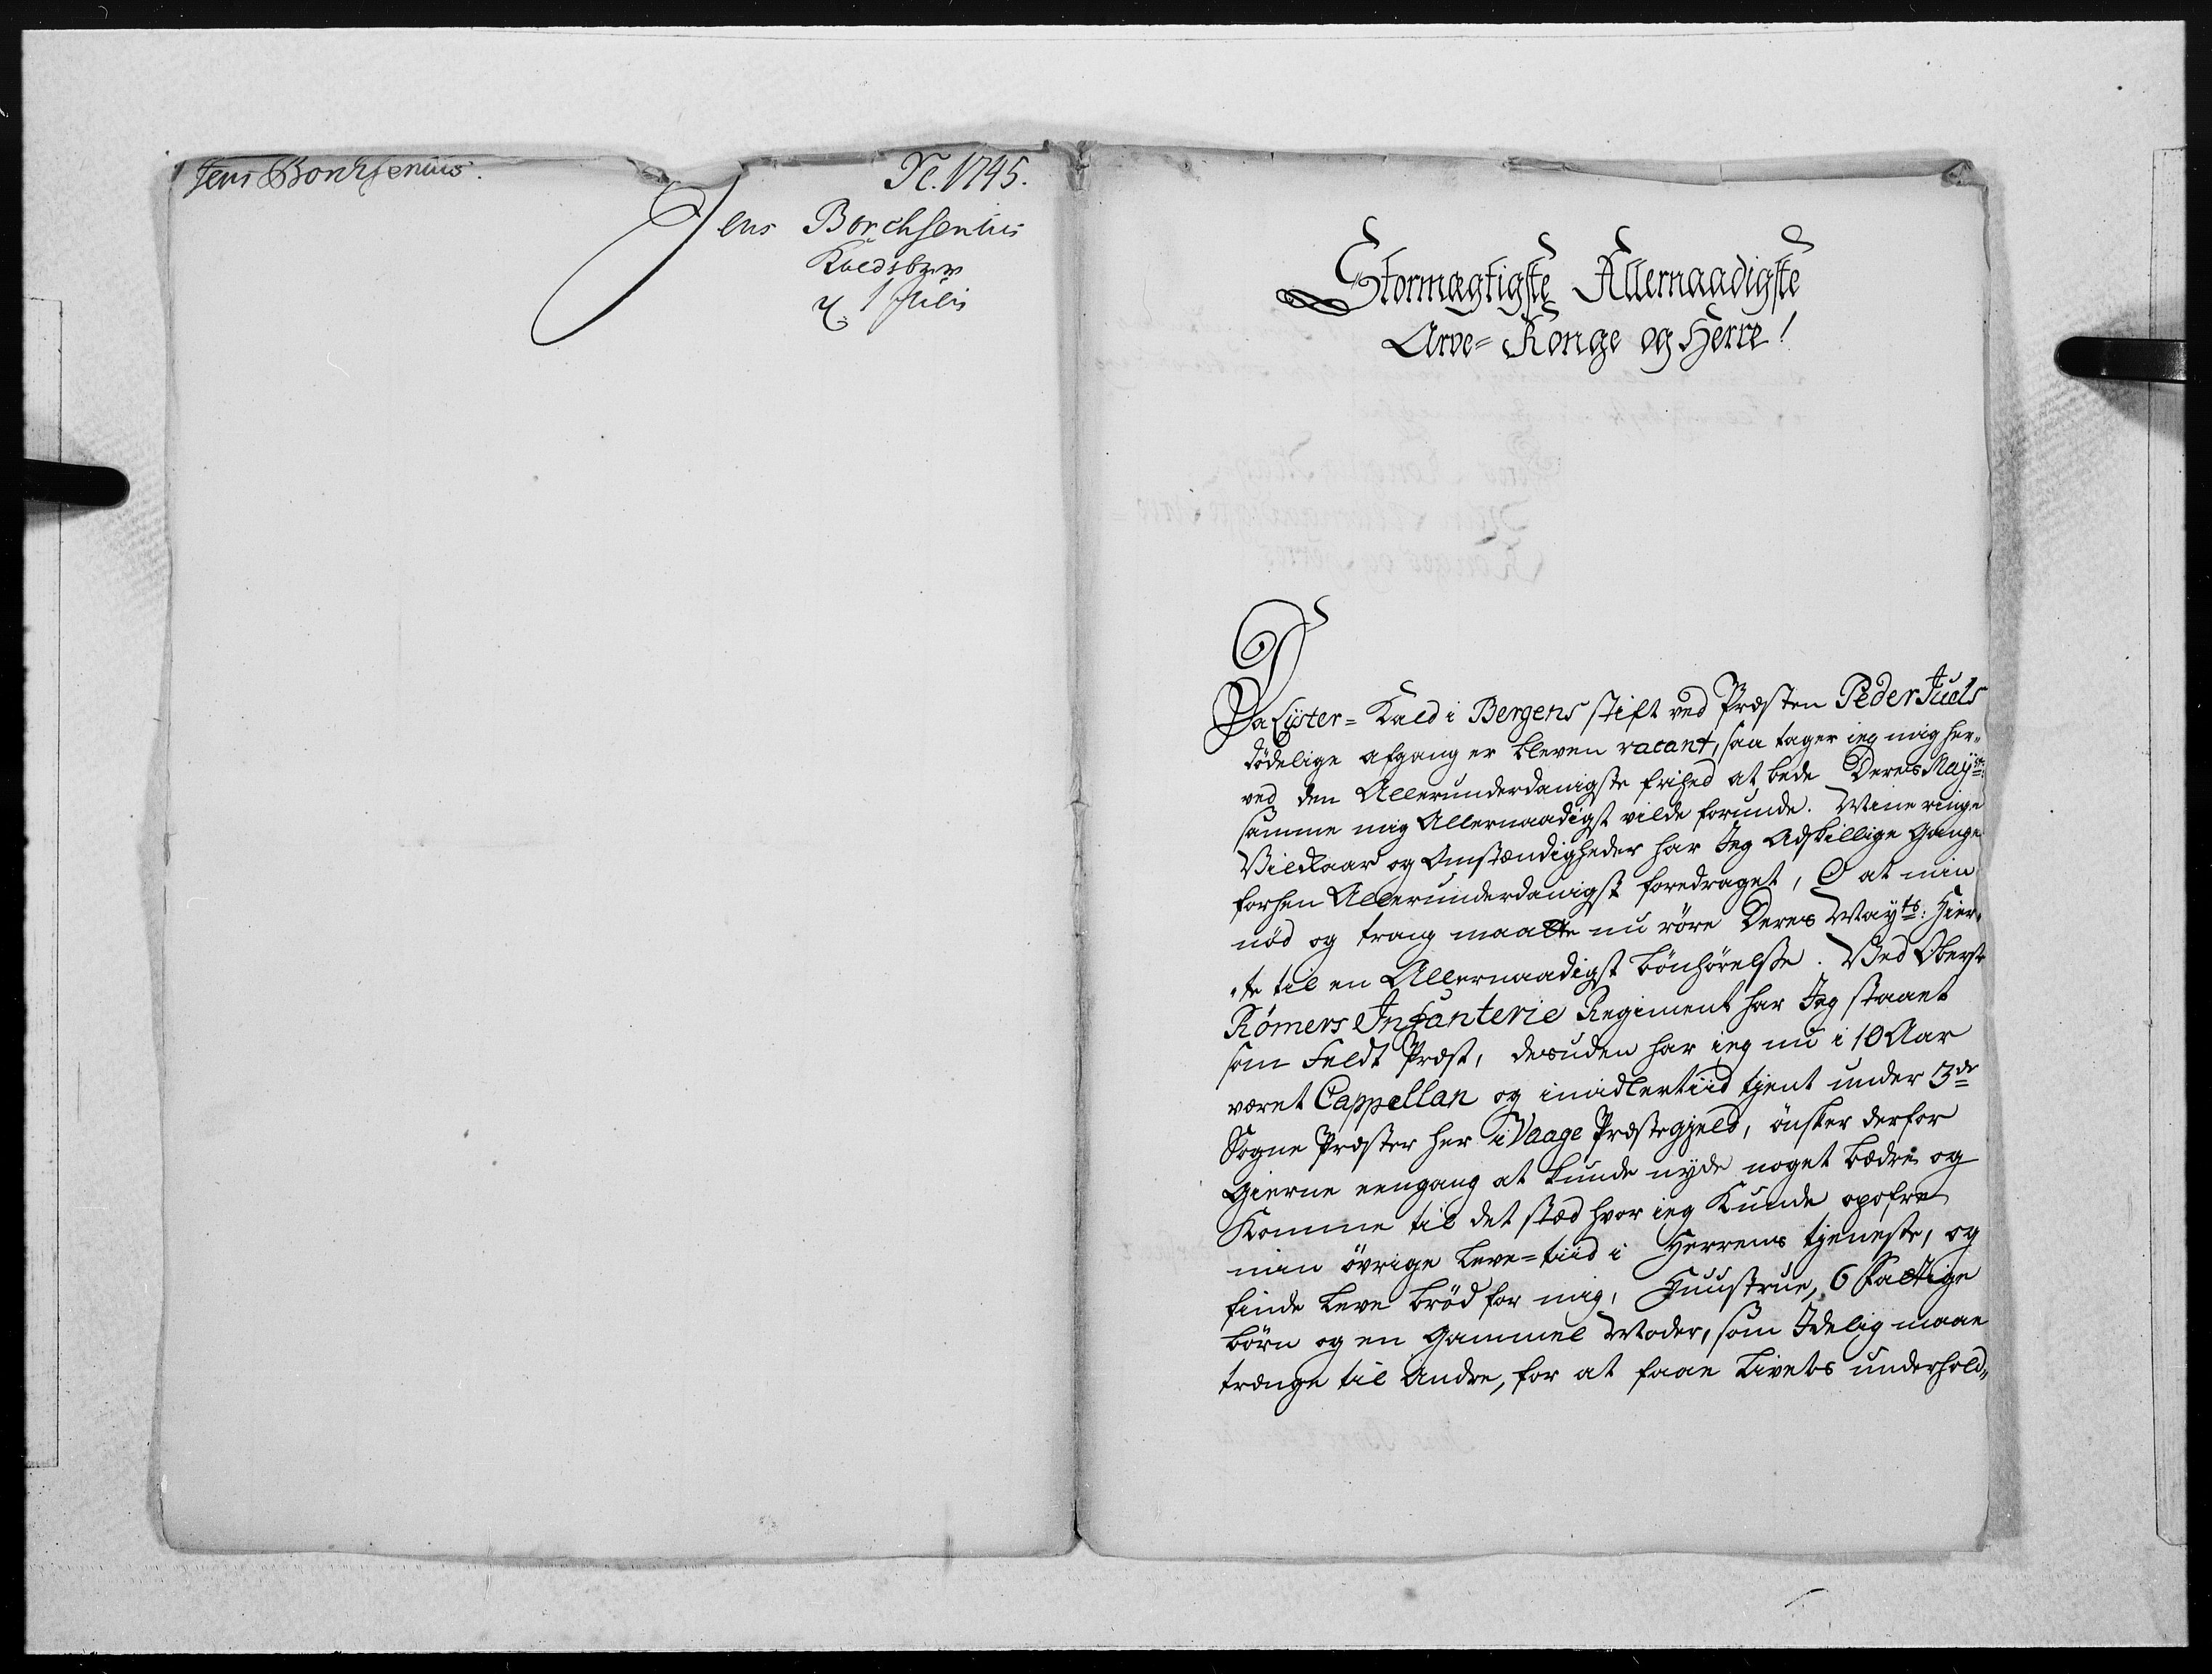 Jens Borchsenius.
Ⅎc. 1745.
Jens Borchsenius
Kaldsbrev
d. 1 Julii
Stormægtigste Allernaadigste
Arve-Konge og Herre!
Da Lyster-Kald i Bergens stift ved Præsten Peder Juels
dödelige afgang er bleven vacant, saa tager ieg mig her-
ved den Allerunderdanigste frihed at bede Deres Mayts:
samme mig Allernaadigst vilde forunde. Mine ringe
Vilckaar og Omstændigheder har Jeg Adskillige Gange
forhen Allerunderdanigst foredraget, O at min
nöd og trang maatte nu röre Deres Mayts: Hier-
-te til en Allernaadigst bönhörelsse. Ved Oberst
Römers Infanterie Regiment har Jeg staaet
som Feldt Præst, desuden har ieg nu i 10 Aar
været Cappellan og imidlertiid tjent under 3de
Sogne Præster her i Vaage Præstegjeld, önsker derfor
Gierne eengang at kunde nyde noget bædre og
Komme til det stæd hvor ieg Kunde opofre
min övrige leve-tiid i Herrens tjeneste, og
finde leve bröd for mig, Huustrue, 6 Fattige
börn og en Gammel Moder, som Idelig maae
trænge til Andre, for at faae livets underhold-